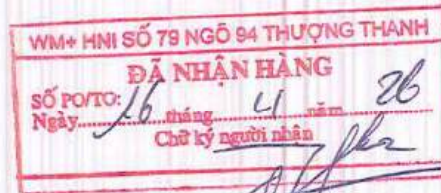 WM+ HNI SỐ 79 NGÕ 94 THƯỢNG THANH
ĐÃ NHẬN HÀNG
SỐ PO/TO:
Ngày 16 tháng 4 năm 26
Chữ ký người nhận